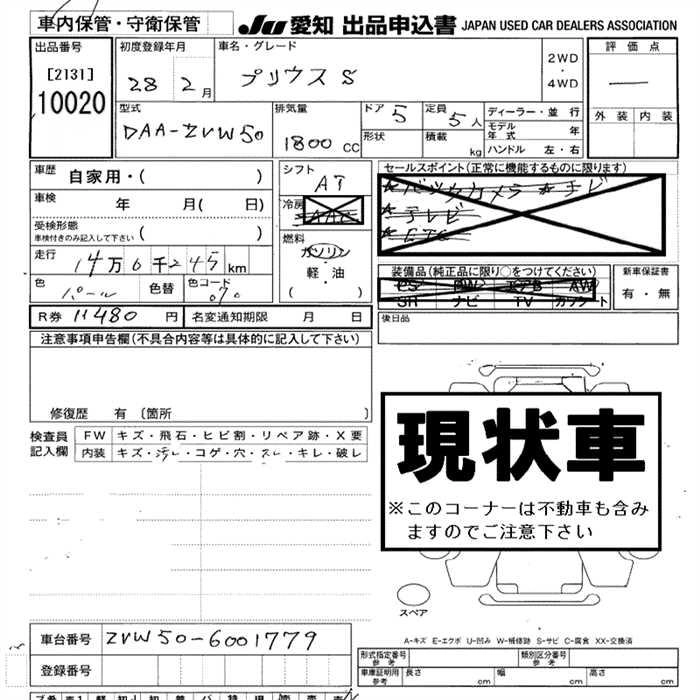 車内保管・守衛保管
JU 愛知 出品申込書 JAPAN USED CAR DEALERS ASSOCIATION
出品番号 [2131] 10020
初度登録年月 28 2月
車名・グレード プリウス S
2WD・4WD
評価点 —
外装 内装
型式 DAA-ZVW50
排気量 1800 CC
ドア 5
定員 5人
形状
積載 kg
ディーラー・並行
モデル年式 年
ハンドル 左・右
車歴 自家用・( )
車検 年 月( 日)
受検形態 車検付きのみ記入して下さい ( )
走行 14万6千245km
色 パール 色替 色コード 070
シフト AT
冷房 AAC
燃料 ガソリン・軽・油 ( )
セールスポイント(正常に機能するものに限ります)
★バックカメラ ★ナビ
★テレビ
★ETC
装備品(純正品に限り○をつけてください)
PS PW エアB AW
SR ナビ TV カワシート
新車保証書 有・無
R券 11480 円 名変通知期限 月 日
後日品
注意事項申告欄(不具合内容等は具体的に記入して下さい)
修復歴 有 [箇所 ]
検査員記入欄
FW キズ・飛石・ヒビ割・リペア跡・X要
内装 キズ・汚レ・コゲ・穴・スレ・キレ・破レ
現状車
※このコーナーは不動車も含み
ますのでご注意下さい
スペア
A-キズ E-エクボ U-凹み W-補修跡 S-サビ C-腐食 XX-交換済
車台番号 ZVW50-6001779
登録番号
形式指定番号 参考 類別区分番号 参考
車庫証明用 参考 長さ cm 幅 cm 高さ cm